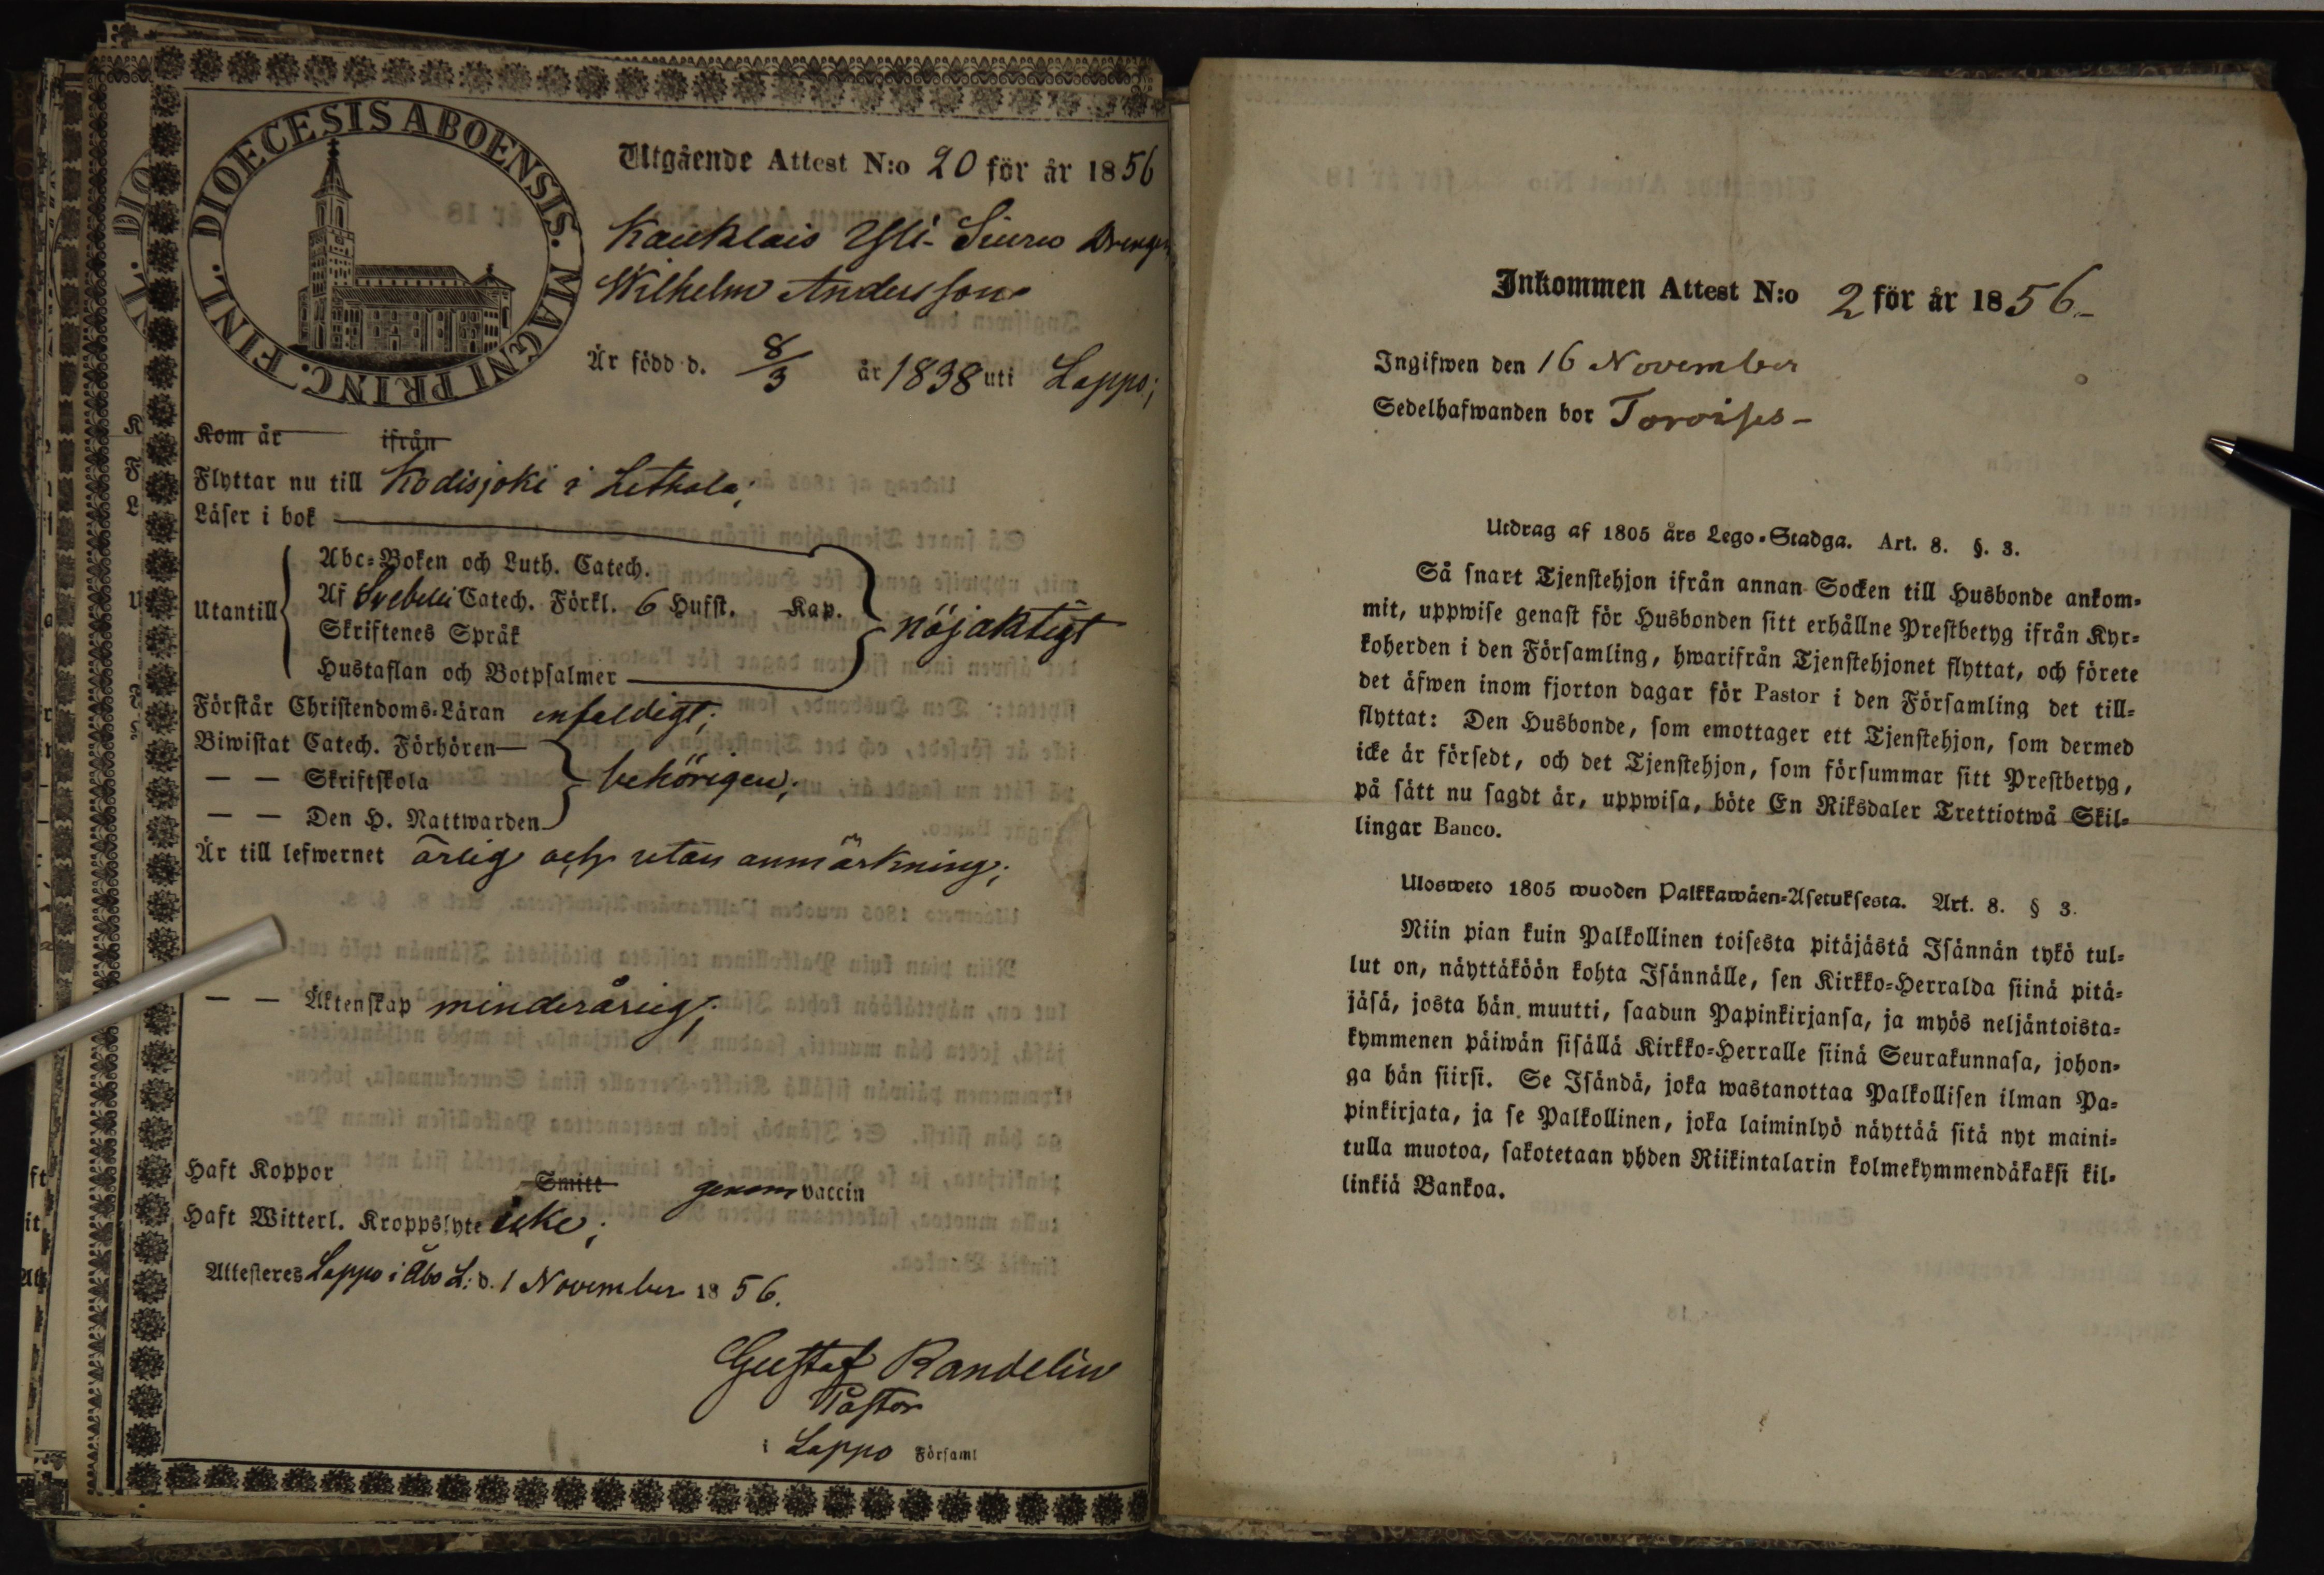 DIOECESIS ABOENSIS. MAGNI PRINC. FINL.
Utgående Attest N:o 20 för år 1856
Kauklais Yli-Siuro Drengen
Wilhelm Andersson
Är född d. 8/3 år 1838 uti Lappo;
Kom år ifrån
Flyttar nu till Kodisjoki i Lethala;
Läser i bok
Utantill
Abc-Boken och Luth. Catech.
Af Svebelii Catech. Förkl. 6 Hufst. Kap.
Skriftenes Språk
Hustaflan och Botpsalmer
nöjaktigt
Förstår Christendoms-Läran enfaldigt;
Biwistat Catech. Förhören
— — Skriftskola
— — Den H. Nattwarden
behörigen;
Är till lefwernet ärlig och utan anmärkning;
— — Äktenskap minderårig;
Haft Koppor Smitt genom vaccin
Haft Witterl. Kroppslyte icke;
Attesteres Lappo i Åbo L: d. 1 November 1856.
Gustaf Randelin
Pastor
i Lappo Församl
Inkommen Attest N:o 2 för år 1856.
Ingifwen den 16 November
Sedelhafwanden bor
Utdrag af 1805 års Lego-Stadga. Art. 8. §. 3.
Så snart Tjenstehjon ifrån annan Socken till Husbonde ankom-
mit, uppwise genast för Husbonden sitt erhållne Prestbetyg ifrån Kyr-
koherden i den Församling, hwarifrån Tjenstehjonet flyttat, och förete
det äfwen inom fjorton dagar för Pastor i den Församling det till-
flyttat: Den Husbonde, som emottager ett Tjenstehjon, som dermed
icke är försedt, och det Tjenstehjon, som försummar sitt Prestbetyg,
på sätt nu sagdt är, uppwisa, böte En Riksdaler Trettiotwå Skil-
lingar Banco.
Ulosweto 1805 wuoden Palkkawäen-Asetuksesta. Art. 8. § 3.
Niin pian kuin Palkollinen toisesta pitäjästä Isännän tykö tul-
lut on, näyttäköön kohta Isännälle, sen Kirkko-Herralda siinä pitä-
jäsä, josta hän muutti, saadun Papinkirjansa, ja myös neljäntoista-
kymmenen päiwän sisällä Kirkko-Herralle siinä Seurakunnasa, johon-
ga hän siirsi. Se Isändä, joka wastanottaa Palkollisen ilman Pa-
pinkirjata, ja se Palkollinen, joka laiminlyö näyttää sitä nyt maini-
tulla muotoa, sakotetaan yhden Riikintalarin kolmekymmendäkaksi kil-
linkiä Bankoa.